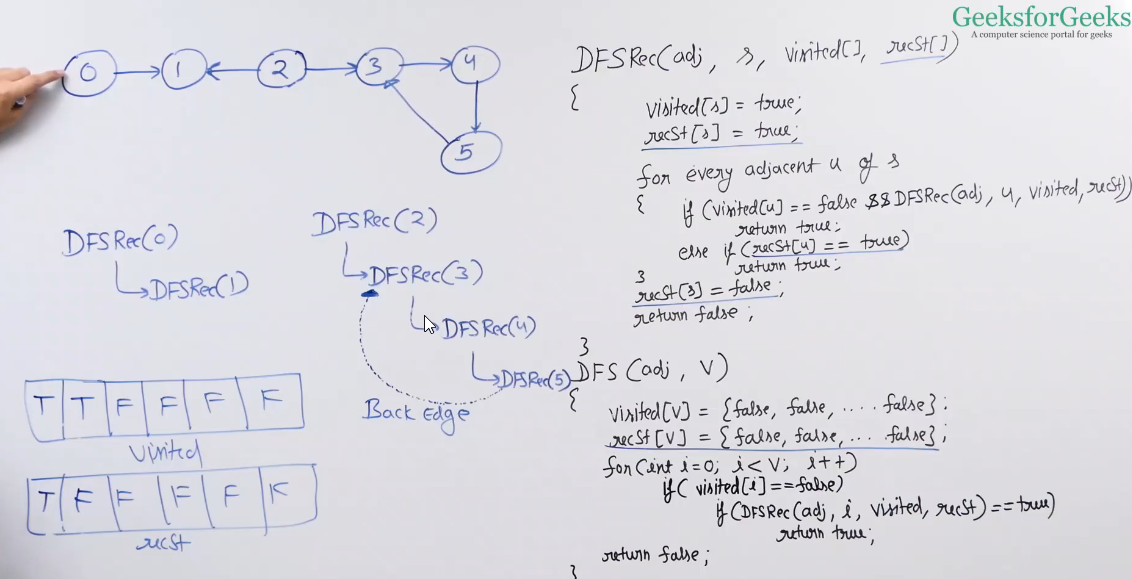 GeeksforGeeks
A computer science portal for geeks
0 1 2 3 4
5
DFSRec(0)
DFSRec(1)
DFSRec(2)
DFSRec(3)
DFSRec(4)
DFSRec(5)
Back Edge
T T F F F F
visited
T F F F F F
recSt
DFSRec(adj, s, visited[], recSt[])
{
visited[s] = true;
recSt[s] = true;
for every adjacent u of s
{ if (visited[u] == false && DFSRec(adj, u, visited, recSt))
return true;
else if (recSt[u] == true)
return true;
}
recSt[s] = false;
return false;
}
DFS (adj, V)
{
visited[V] = {false, false, .... false};
recSt[V] = {false, false, ... false};
for(int i=0; i<V; i++)
if( visited[i]==false)
if(DFSRec(adj, i, visited, recSt)==true)
return true;
return false;
}